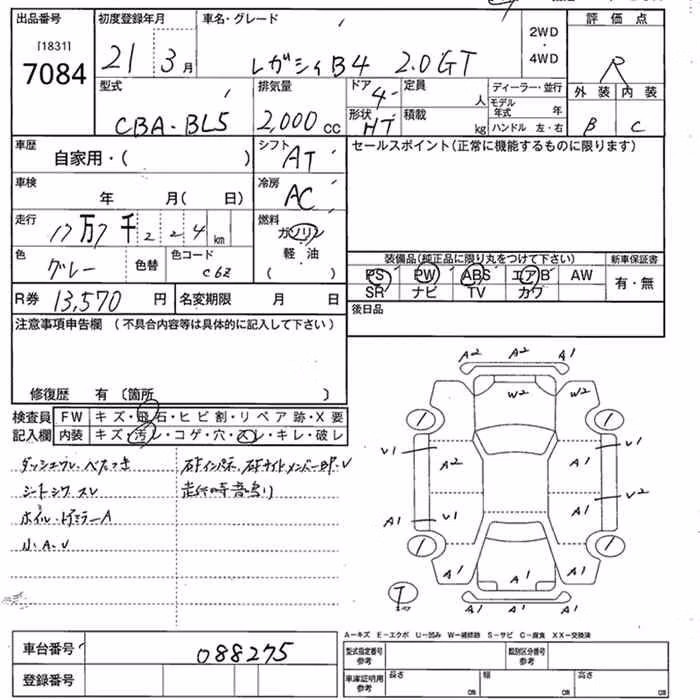 出品番号 初度登録年月 車名・グレード 評価点
[1831] 7084 21 3月 レガシィB4 2.0GT 2WD・4WD R
型式 排気量 ドア 定員 ディーラー・並行 外装 内装
CBA-BL5 2,000cc 4 人 モデル年式 年 B C
形状 HT 積載 kg ハンドル 左・右
車歴 シフト セールスポイント(正常に機能するものに限ります)
自家用・( ) AT
車検 冷房
年 月( 日) AC
走行 燃料
17万7千224km ガソリン
軽油
( )
色 色替 色コード 装備品(純正品に限り丸をつけて下さい) 新車保証書
グレー C6Z PS PW ABS エアB AW 有・無
SR ナビ TV カワ
R券 13,570円 名変期限 月 日 後日品
注意事項申告欄 (不具合内容等は具体的に記入して下さい)
修復歴 有 〔箇所 〕
検査員 FW キズ・飛石・ヒビ割・リペア跡・X要
記入欄 内装 キズ・汚レ・コゲ・穴・スレ・キレ・破レ
シートシワ スレ 走行時音鳴り
小A、U
A2 A2 A1
W2 W2
U1 A2 A1 U1
A1 U1 A1 U2
A1 A1 A1
A1 A1 A1
T
A-キズ E-エクボ U-凹み W-補修跡 S-サビ C-腐食 XX-交換済
車台番号 088275 型式指定番号 参考 類別区分番号 参考
登録番号 車庫証明用 参考 長さ cm 幅 cm 高さ cm